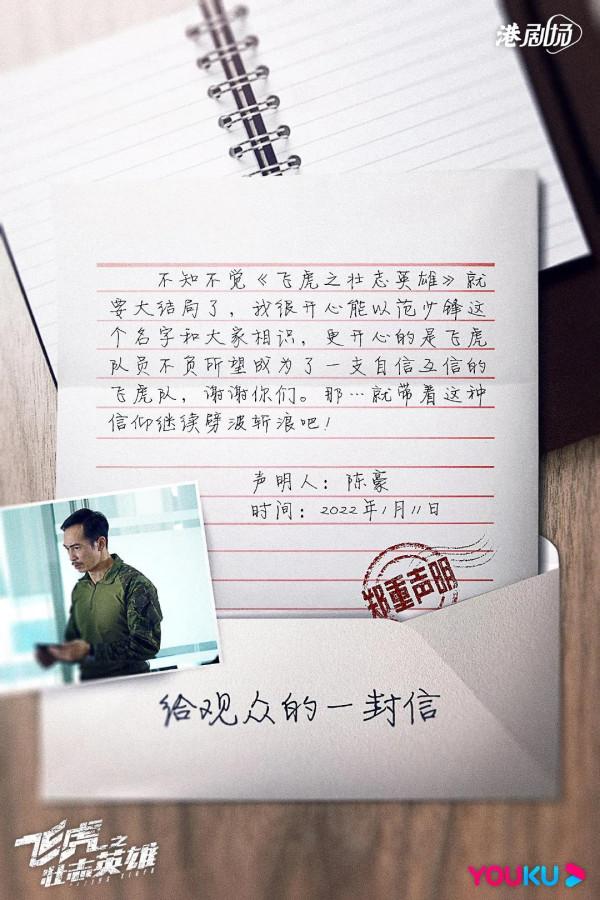 港剧场
不知不觉《飞虎之壮志英雄》就
要大结局了，我很开心能以范少锋这
个名字和大家相识，更开心的是飞虎
队员不负所望成为了一支自信互信的
飞虎队，谢谢你们。那…就带着这种
信仰继续劈波斩浪吧！
声明人：陈豪
时间：2022年1月11日
郑重声明
给观众的一封信
飞虎之
壮志英雄
YOUKU